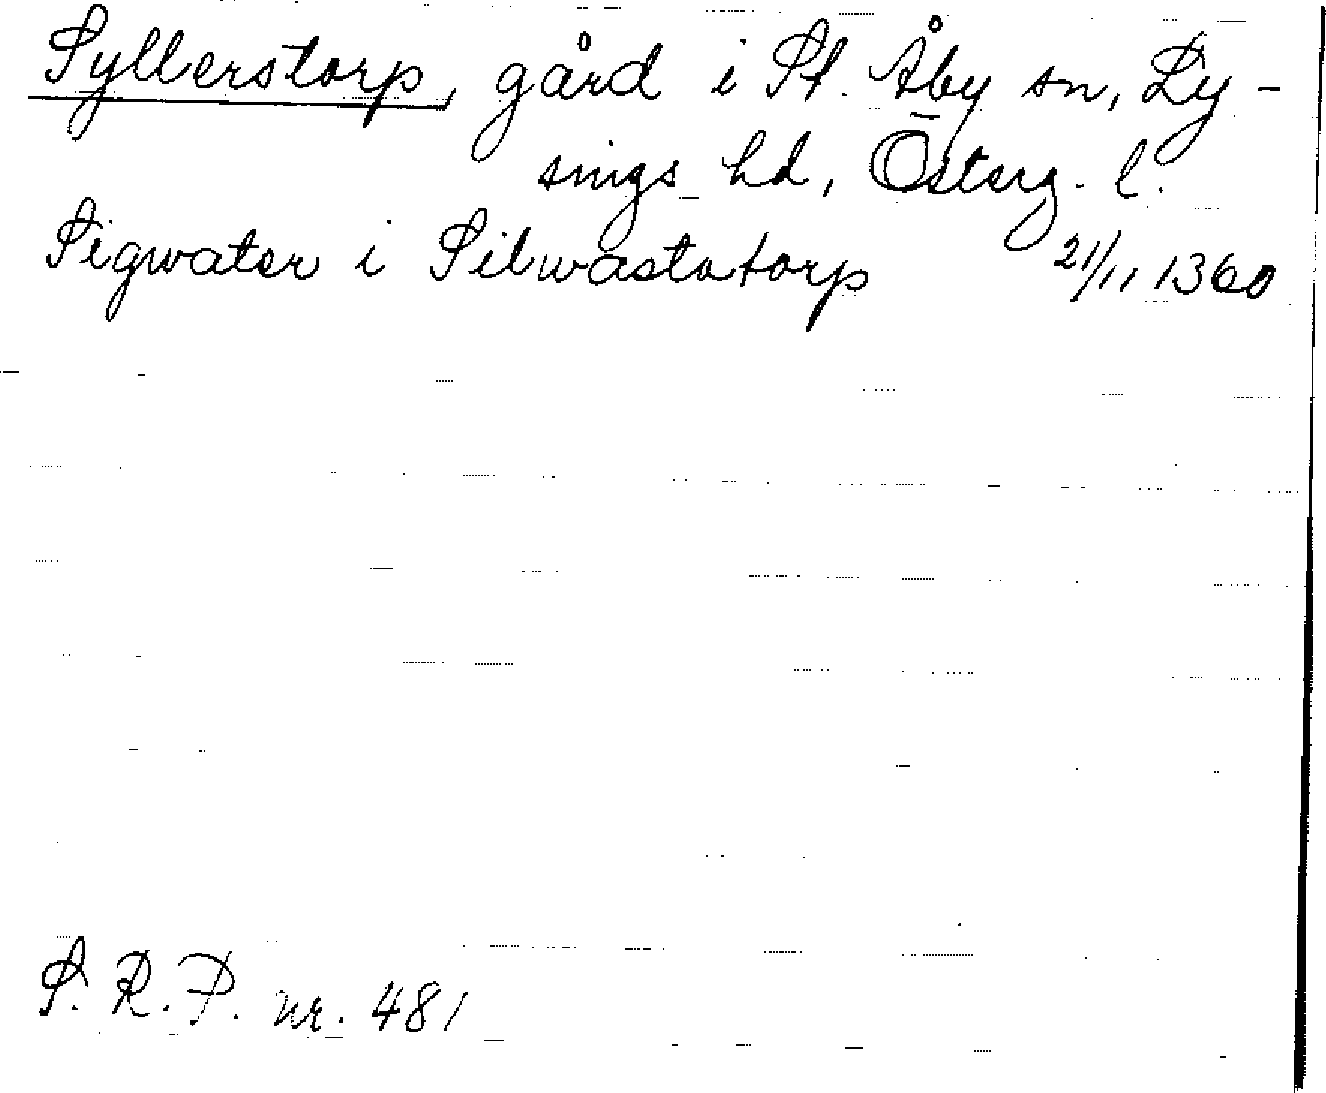 Syllerstorp, gård i St. Åby sn, Ly-
sings hd, Österg. l.
Sigwater i Silwastatorp 21/11 1360
S. R. P. nr. 481